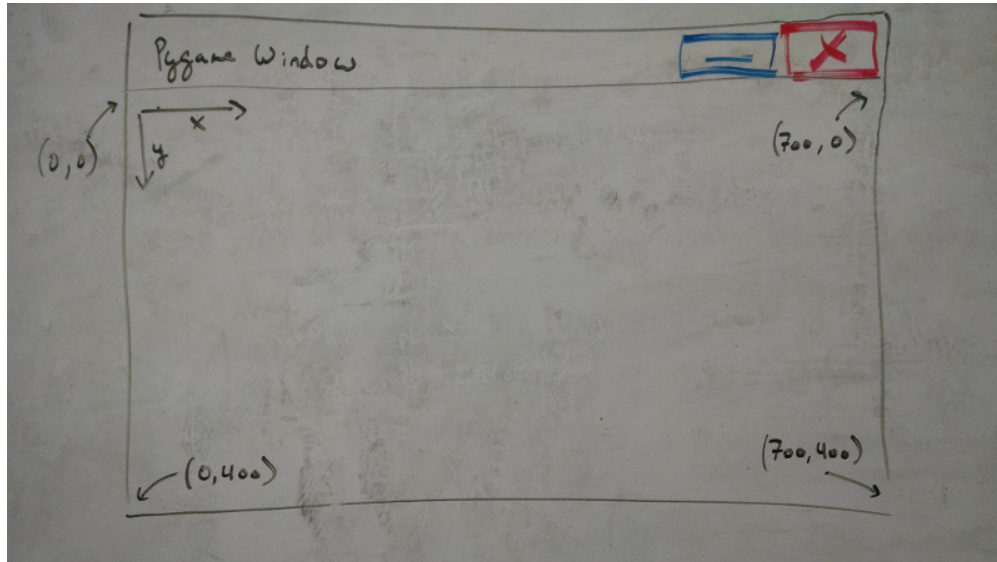 Pygame Window
x
(0,0)
y
(700,0)
(0,400)
(700,400)